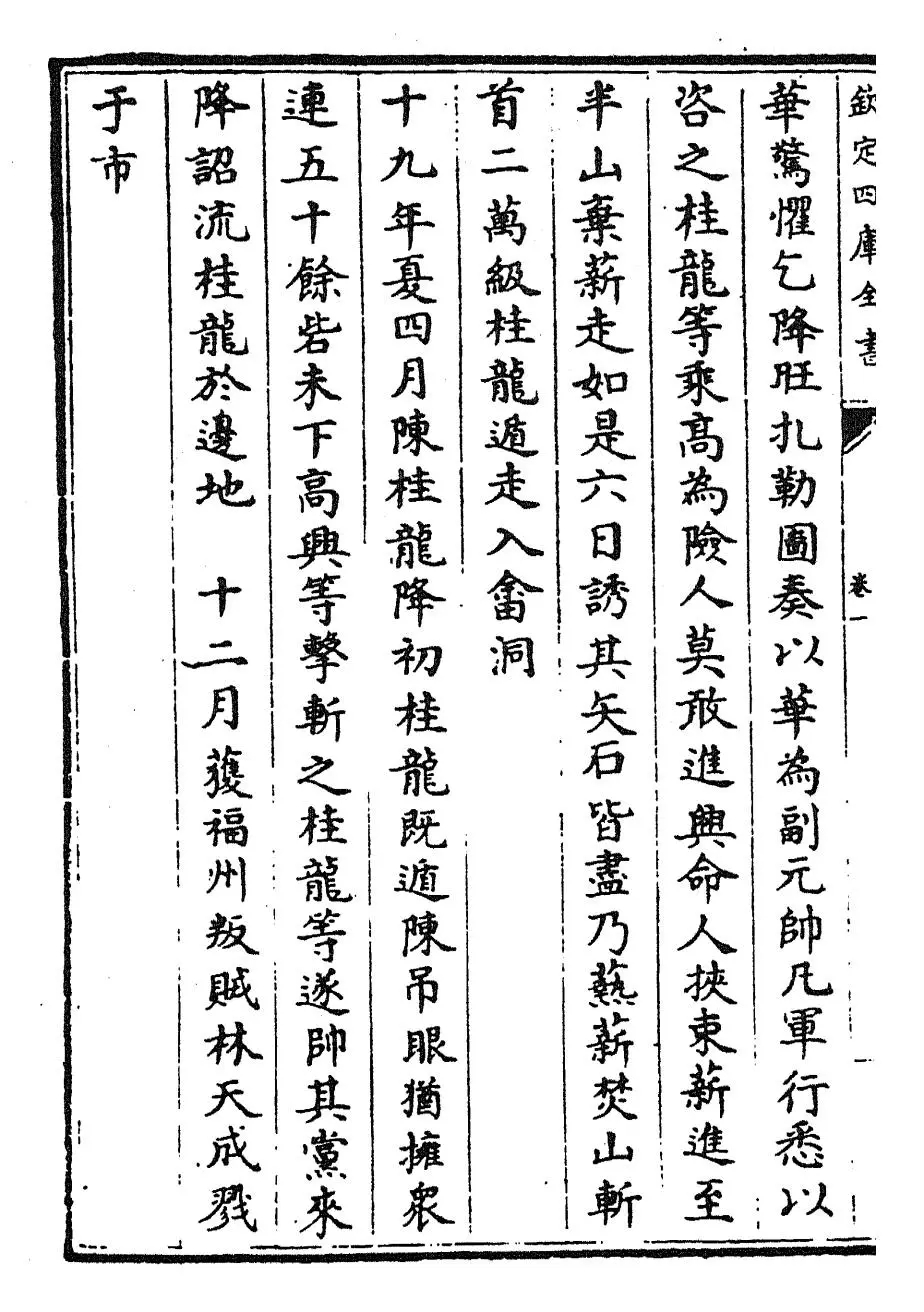 欽定四庫全書
卷一
華驚懼乞降旺扎勒圖奏以華為副元帥凡軍行悉以
咨之桂龍等乘高為險人莫敢進興命人挾束薪進至
半山棄薪走如是六日誘其矢石皆盡乃爇薪焚山斬
首二萬級桂龍遁走入畬洞
十九年夏四月陳桂龍降初桂龍既遁陳吊眼猶擁衆
連五十餘砦未下高興等擊斬之桂龍等遂帥其黨來
降詔流桂龍於邊地　十二月獲福州叛賊林天成戮
于市